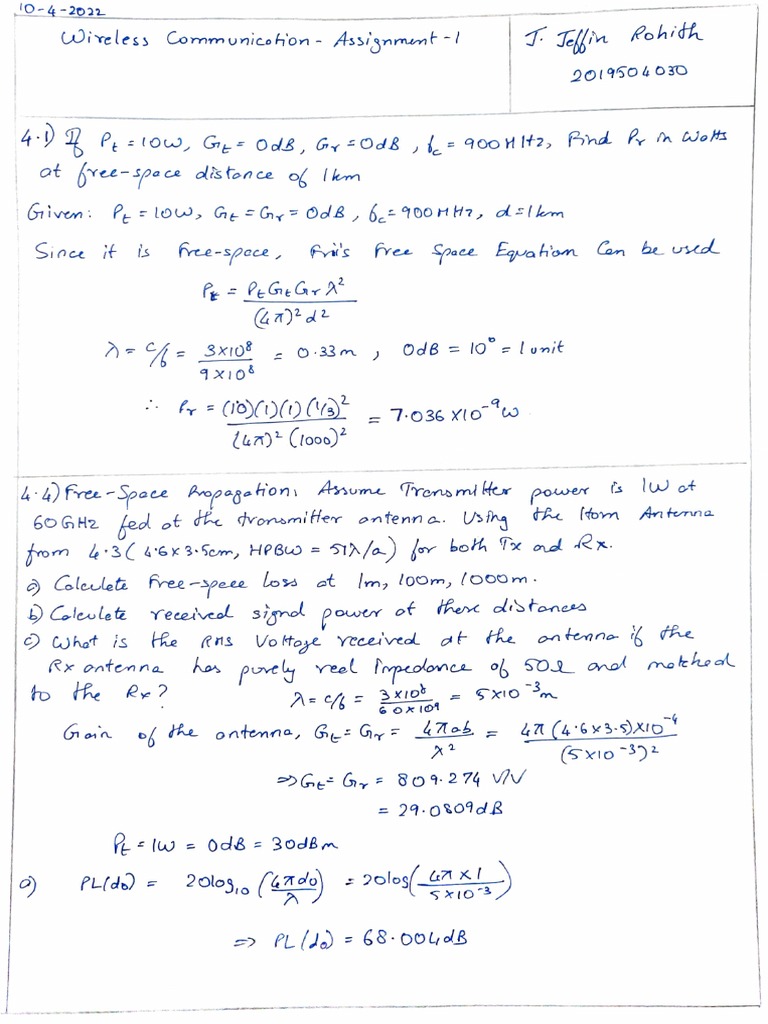 10-4-2022
Wireless Communication - Assignment - 1
J. Jeffin Rohith
2019504030
4.1) If Pt = 10W, Gt = 0dB, Gr = 0dB, fc = 900MHz, Find Pr in Watts
at free-space distance of 1km
Given: Pt = 10W, Gt = Gr = 0dB, fc = 900MHz, d = 1km
Since it is free-space, Frii's Free Space Equation Can be used
Pr = PtGtGrλ² / (4π)²d²
λ = c/f = 3×10⁸ / 9×10⁸ = 0.33m , 0dB = 10⁰ = 1 unit
∴ Pr = (10)(1)(1)(1/3)² / (4π)² (1000)² = 7.036 ×10⁻⁹ W
4.4) Free-Space Propagation: Assume Transmitter power is 1W at
60GHz fed at the transmitter antenna. Using the Horn Antenna
from 4.3 (4.6 × 3.5cm, HPBW = 51λ/a) for both Tx and Rx.
a) Calculate free-space Loss at 1m, 100m, 1000m.
b) Calculate received signal power at these distances
c) What is the RMS Voltage received at the antenna if the
Rx antenna has purely real Impedance of 50Ω and matched
to the Rx?
λ = c/f = 3×10⁸ / 60×10⁹ = 5×10⁻³m
Gain of the antenna, Gt = Gr = 4πab / λ² = 4π(4.6×3.5)×10⁻⁴ / (5×10⁻³)²
⇒ Gt = Gr = 809.274 V/V
= 29.0809dB
Pt = 1W = 0dB = 30dBm
a) PL(do) = 20log₁₀ (4πdo / λ) = 20log (4π×1 / 5×10⁻³)
⇒ PL(do) = 68.004dB